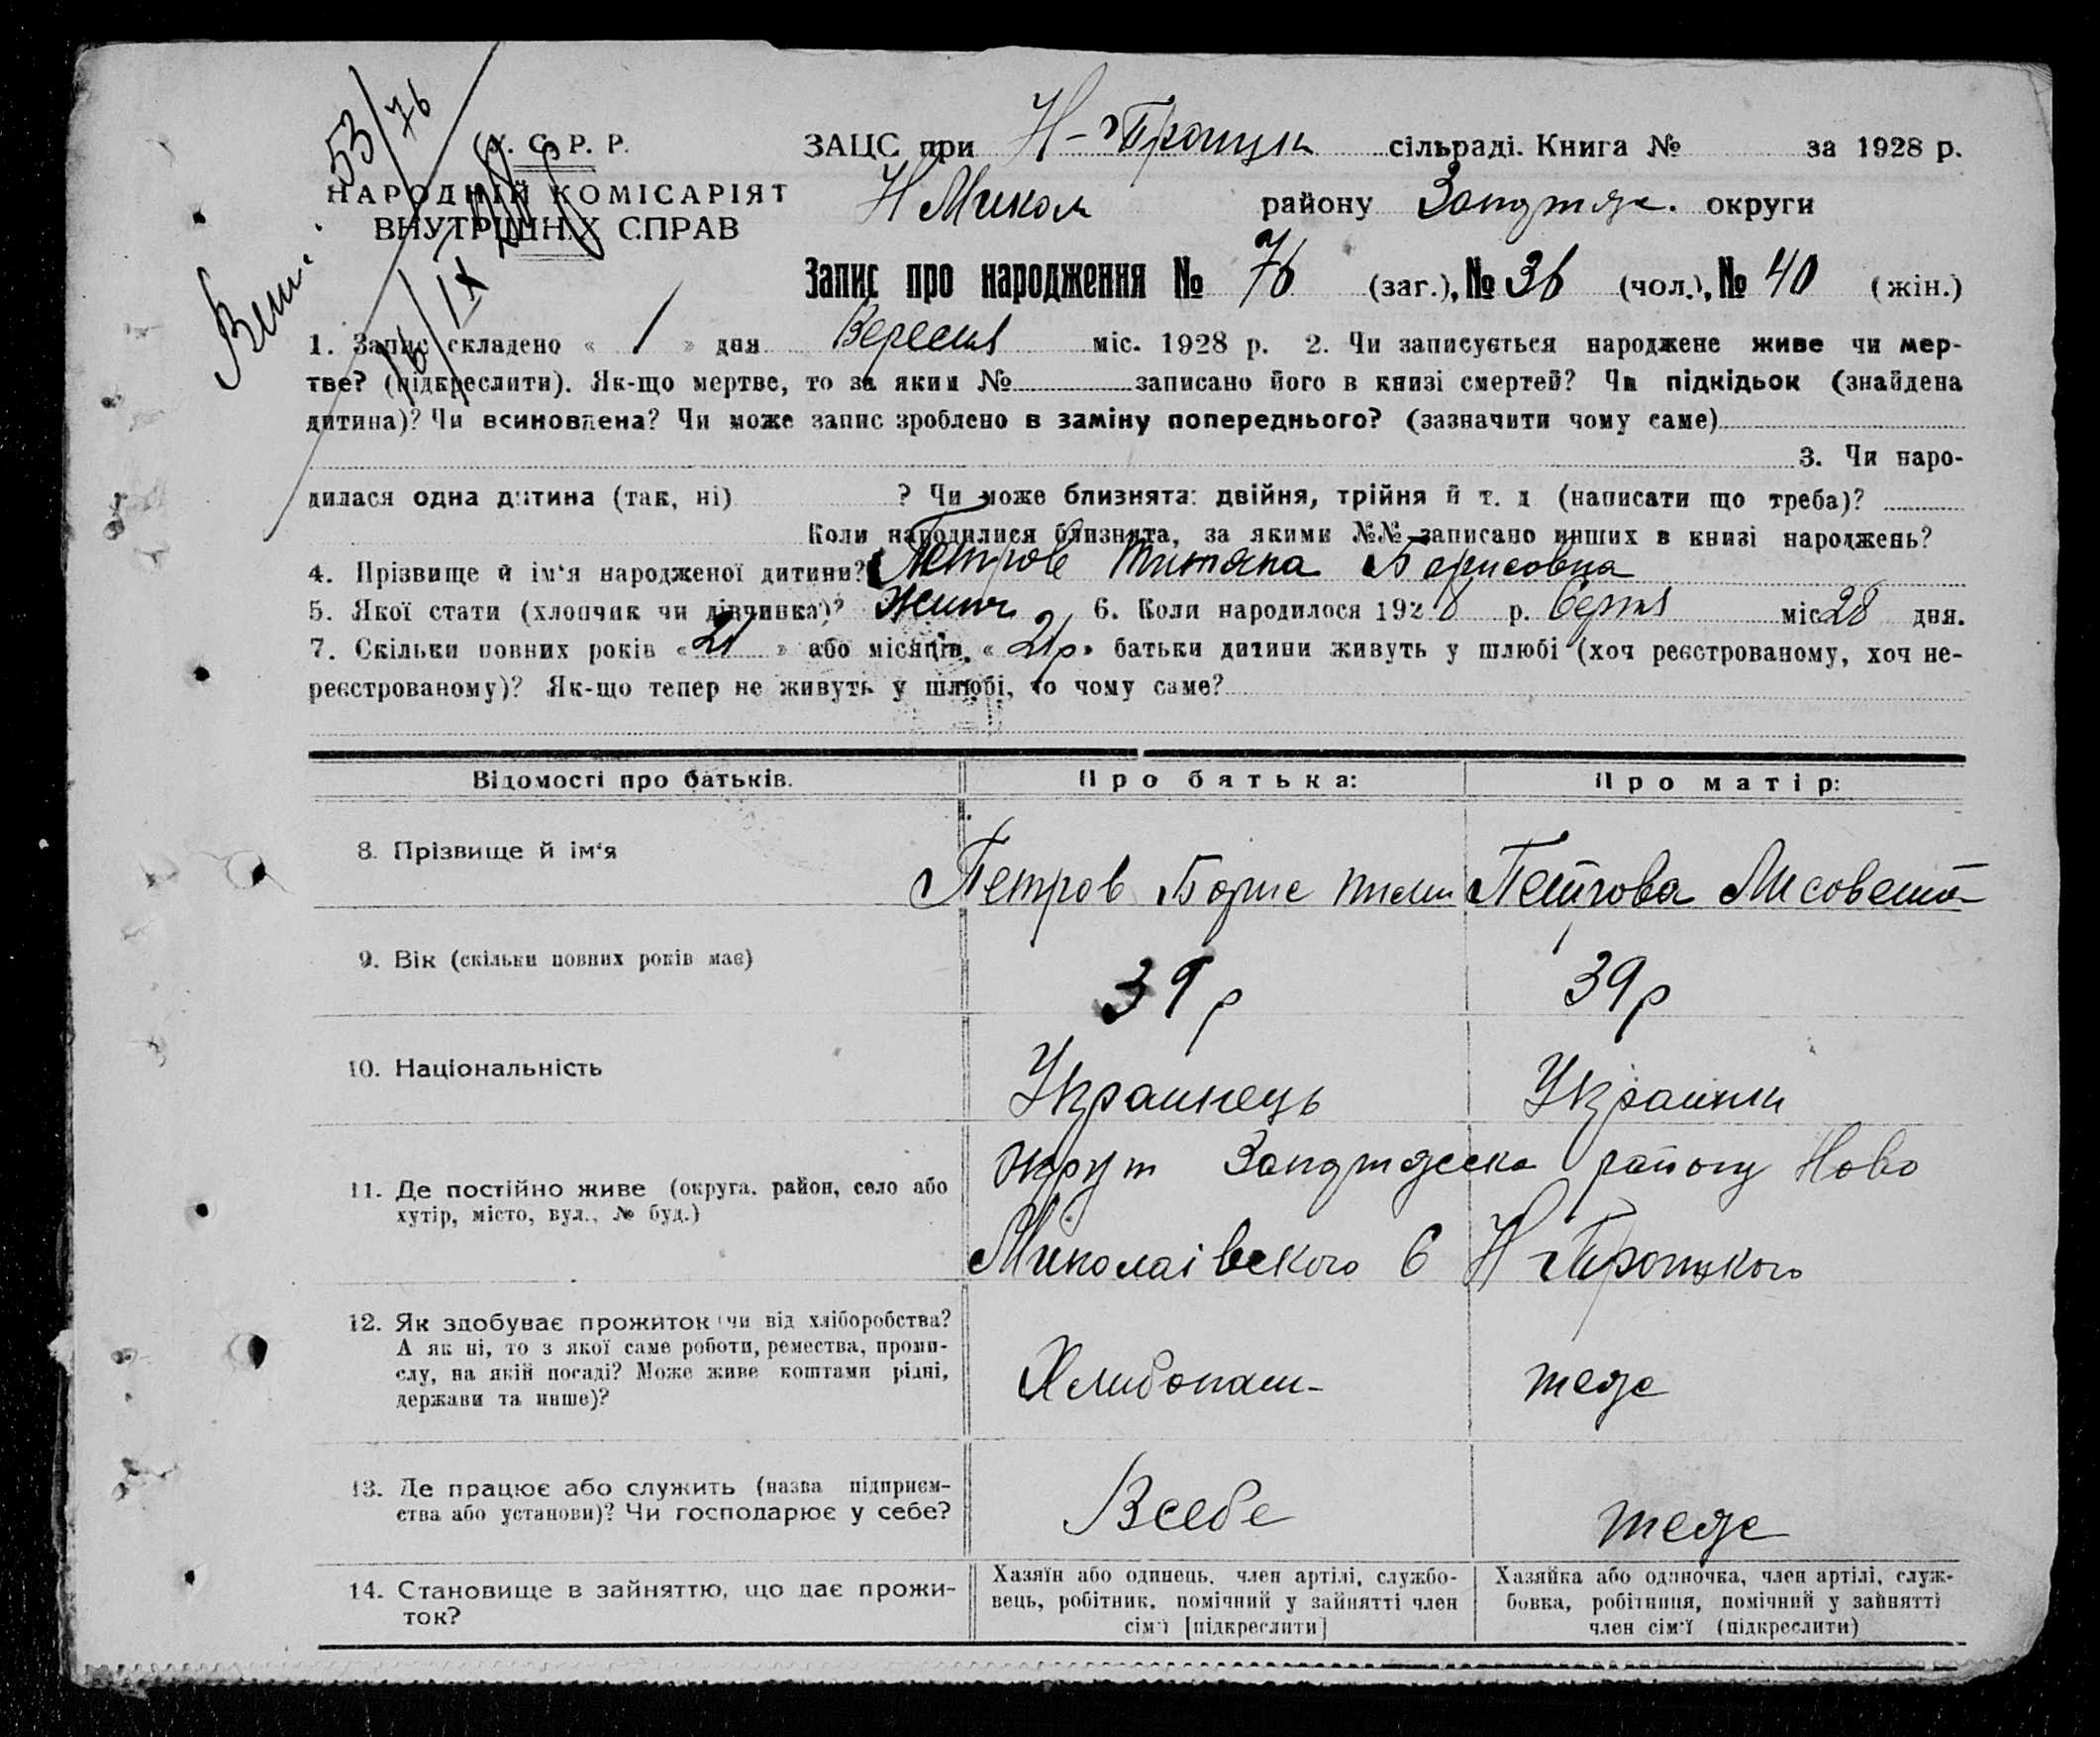 53/76
У. С. Р. Р.
НАРОДНІЙ КОМІСАРІЯТ
ВНУТРІШНІХ СПРАВ
ЗАЦС при Н-Троицк сільраді. Книга № за 1928 р.
Н Микол району округи
Запис про народження № 76 (заг.), № 36 (чол.), № 40 (жін.)
1. Запис складено « 1 » дня Вересня міс. 1928 р. 2. Чи записується народжене живе чи мер-
тве? (підкреслити). Як-що мертве, то за яким № записано його в книзі смертей? Чи підкідьок (знайдена
дитина)? Чи всиновлена? Чи може запис зроблено в заміну попереднього? (зазначити чому саме)
3. Чи наро-
дилася одна дитина (так, ні) ? Чи може близнята: двійня, трійня й т. д (написати що треба)?
Коли народилися близнята, за якими №№ записано инших в книзі народжень?
4. Прізвище й ім'я народженої дитини? Петрова Титяна Борисовна
5. Якої стати (хлопчик чи дівчинка)? Жинч 6. Коли народилося 1928 р. серпня міс 28 дня.
7. Скільки повних років « 21 » або місяців, « 21р » батьки дитини живуть у шлюбі (хоч реєстрованому, хоч не-
реєстрованому)? Як-що тепер не живуть у шлюбі, то чому саме?
Відомості про батьків. Про батька: Про матір:
8. Прізвище й ім'я
Петров Борис Тим Петрова Лисовета
9. Вік (скільки повних років має)
39 р 39 р
10. Національність
Украинець Украинки
11. Де постійно живе (округа, район, село або
хутір, місто, вул., № буд.)
району Ново
Миколаівского С Н Троицкого
12. Як здобуває прожиток (чи від хліборобства?
А як ні, то з якої саме роботи, ремества, проми-
слу, на якій посаді? Може живе коштами рідні,
держави та инше)?
Хлибопаш- теже
13. Де працює або служить (назва підприєм-
ства або установи)? Чи господарює у себе?
Всебе теже
14. Становище в зайняттю, що дає прожи-
ток?
Хазяїн або одинець, член артілі, службо-
вець, робітник, помічний у зайнятті член
сім'ї [підкреслити]
Хазяйка або одиночка, член артілі, служ-
бовка, робітниця, помічний у зайнятті
член сім'ї (підкреслити)